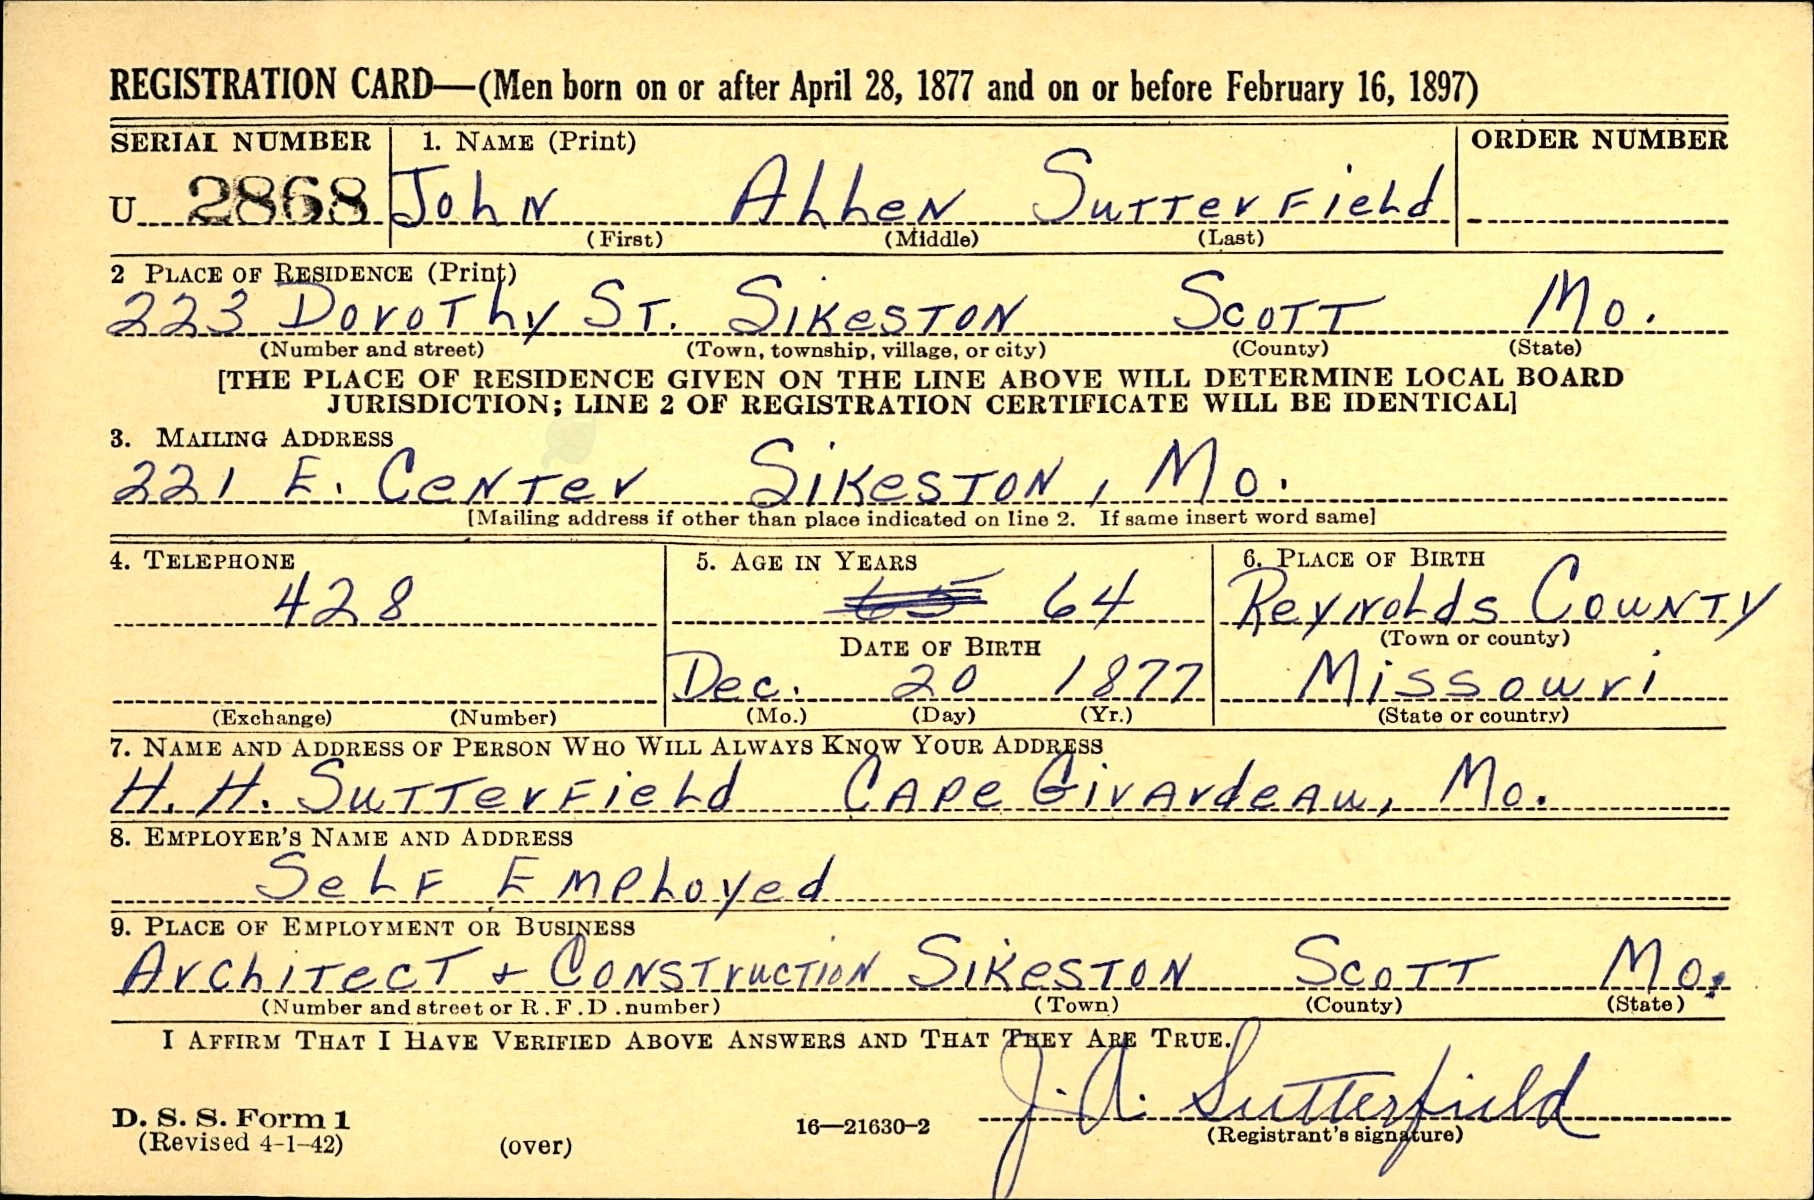 REGISTRATION CARD—(Men born on or after April 28, 1877 and on or before February 16, 1897)
SERIAL NUMBER 1. NAME (Print) ORDER NUMBER
U 2868 John Allen Sutterfield
(First) (Middle) (Last)
2 PLACE OF RESIDENCE (Print)
223 Dorothy St. Sikeston Scott Mo.
(Number and street) (Town, township, village, or city) (County) (State)
[THE PLACE OF RESIDENCE GIVEN ON THE LINE ABOVE WILL DETERMINE LOCAL BOARD
JURISDICTION; LINE 2 OF REGISTRATION CERTIFICATE WILL BE IDENTICAL]
3. MAILING ADDRESS
221 E. Center Sikeston, Mo.
[Mailing address if other than place indicated on line 2. If same insert word same]
4. TELEPHONE 5. AGE IN YEARS 6. PLACE OF BIRTH
428 65 64 Reynolds County
(Town or county)
DATE OF BIRTH
Dec. 20 1877 Missouri
(Exchange) (Number) (Mo.) (Day) (Yr.) (State or country)
7. NAME AND ADDRESS OF PERSON WHO WILL ALWAYS KNOW YOUR ADDRESS
H. H. Sutterfield Cape Girardeau, Mo.
8. EMPLOYER'S NAME AND ADDRESS
Self Employed
9. PLACE OF EMPLOYMENT OR BUSINESS
Architect + Construction Sikeston Scott Mo.
(Number and street or R.F.D. number) (Town) (County) (State)
I AFFIRM THAT I HAVE VERIFIED ABOVE ANSWERS AND THAT THEY ARE TRUE.
J. A. Sutterfield
D. S. S. Form 1
(Revised 4-1-42) (over) 16—21630-2 (Registrant's signature)